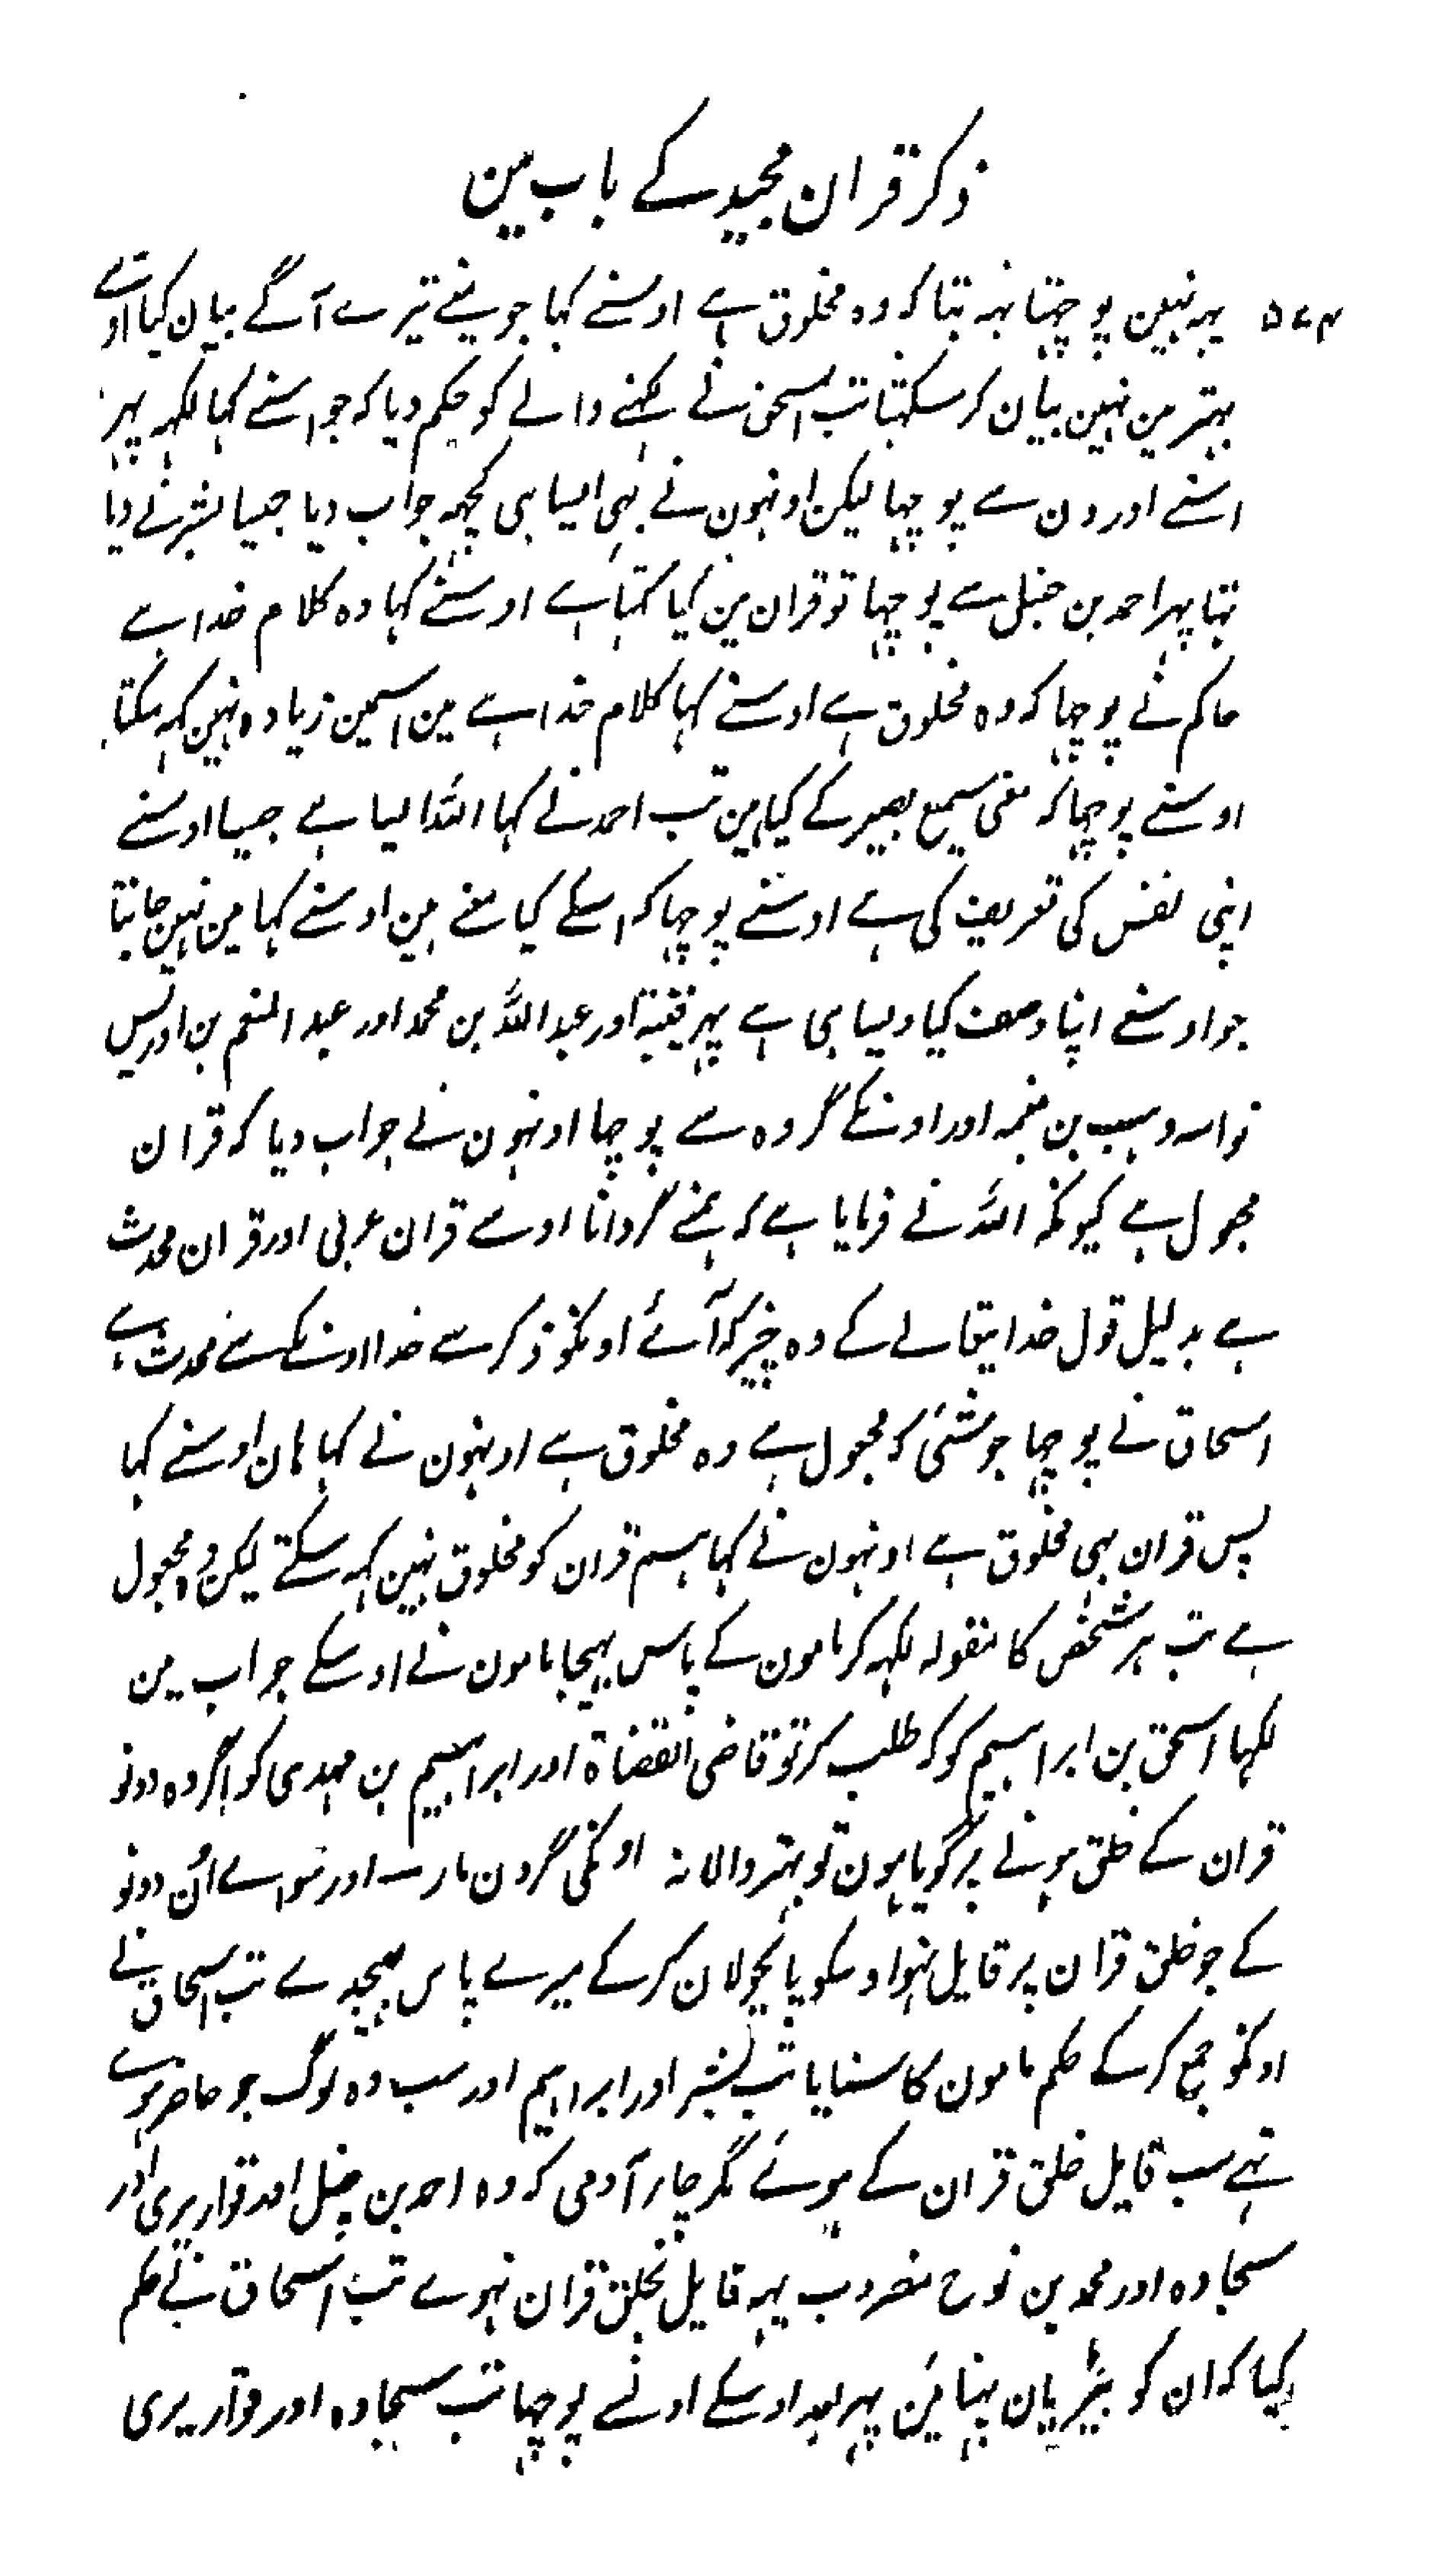 ذکر قران مجید کے باب مین
۵۷۴ یہہ نہین پوچہتا یہہ بتا کہ وہ مخلوق ہے اوسنے کہا جو مینے تیرے آگے بیان کیا اوسے
بہتر مین نہین بیان کر سکتا تب اسحق نے لکہنے والے کو حکم دیا کہ جو اسنے کہا لکہہ پہر
اسنے اورون سے پوچہا لیکن اونہون نے بہی ایسا ہی کچہہ جواب دیا جیسا بشر نے دیا
تہا پہر احمد بن حنبل سے پوچہا تو قران مین کیا کہتا ہے اوسنے کہا وہ کلام خدا ہے
حاکم نے پوچہا کہ وہ مخلوق ہے اوسنے کہا کلام خدا ہے مین اسمین زیادہ نہین کہہ سکتا
اوسنے پوچہا کہ معنی سمیع بصیر کے کیا ہین تب احمد نے کہا اللہ ایسا ہے جیسا اوسنے
اپنی نفس کی تعریف کی ہے اوسنے پوچہا کہ اسکے کیا معنے ہین اوسنے کہا مین نہین جانتا
جو اوسنے اپنا وصف کیا ویسا ہی ہے پہر قتیبہ اور عبد اللہ بن محمد اور عبد المنعم بن ادریس
نواسہ وہب بن منبہ اور اونکے گروہ سے پوچہا اونہون نے جواب دیا کہ قران
مجعول ہے کیونکہ اللہ نے فرمایا ہے کہ ہمنے گردانا اوسے قران عربی اور قران محدث
ہے بدلیل قول خدایتعالے کے وہ چیز کہ آئے اونکو ذکر سے خدا اونکے سے محدث ہے
اسحاق نے پوچہا جو شئی کہ مجعول ہے وہ مخلوق ہے اونہون نے کہا ہان اوسنے کہا
پس قران بہی مخلوق ہے اونہون نے کہا ہم قران کو مخلوق نہین کہہ سکتے لیکن وہ مجعول
ہے تب ہر شخص کا مقولہ لکہہ کر مامون کے پاس بہیجا مامون نے اوسکے جواب مین
لکہا اسحق بن ابراہیم کو کہ طلب کر تو قاضی القضاۃ اور ابراہیم بن مہدی کو اگر وہ دونو
قران کے خلق ہونے پر گویا ہون تو بہتر والا نہ اونکی گردن مار اور سواے اُن دونو
کے جو خلق قران پر قایل نہوا وسکو پابجولان کر کے میرے پاس بہیجدے تب اسحاق نے
اونکو جمع کر کے حکم مامون کا سنایا تب بشر اور ابراہیم اور سب وہ لوگ جو حاضر ہوے
تہے سب قایل خلق قران کے ہوئے مگر چار آدمی کہ وہ احمد بن حنبل اور قواریری اور
سجادہ اور محمد بن نوح مضروب یہہ قایل بخلق قران نہوے تب اسحاق نے حکم
کیا کہ ان کو بیڑیان پہنائین پہر بعد اوسکے اونے پوچہا تب سجادہ اور قواریری